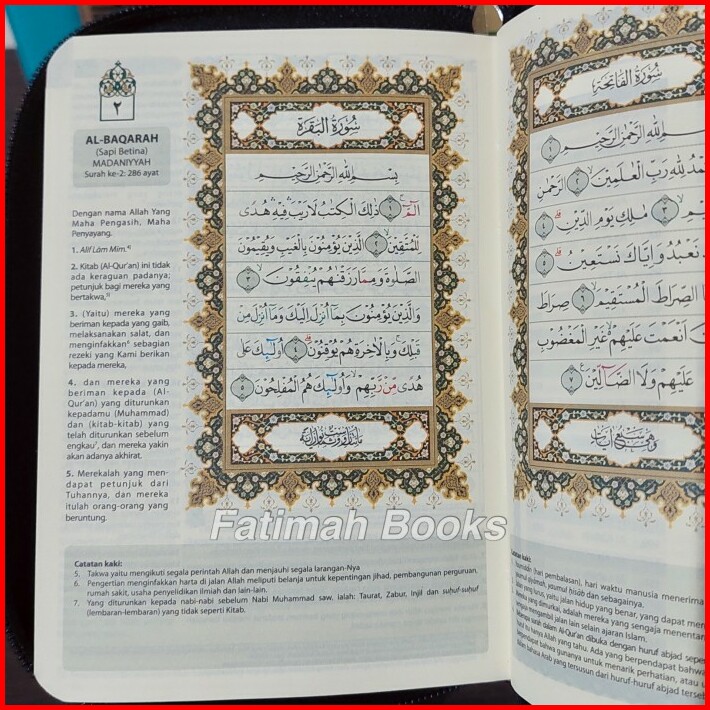 ٢
AL-BAQARAH
(Sapi Betina)
MADANIYYAH
Surah ke-2: 286 ayat
Dengan nama Allah Yang
Maha Pengasih, Maha
Penyayang.
1. Alif Lām Mīm.⁴⁾
2. Kitab (Al-Qur'an) ini tidak
ada keraguan padanya;
petunjuk bagi mereka yang
bertakwa,⁵⁾
3. (Yaitu) mereka yang
beriman kepada yang gaib,
melaksanakan salat, dan
menginfakkan⁶ sebagian
rezeki yang Kami berikan
kepada mereka,
4. dan mereka yang
beriman kepada (Al-
Qur'an) yang diturunkan
kepadamu (Muhammad)
dan (kitab-kitab) yang
telah diturunkan sebelum
engkau⁷, dan mereka yakin
akan adanya akhirat.
5. Merekalah yang men-
dapat petunjuk dari
Tuhannya, dan mereka
itulah orang-orang yang
beruntung.
سُورَةُ الْبَقَرَةِ
بِسْمِ اللهِ الرَّحْمٰنِ الرَّحِيْمِ
الۤمّۤ ۚ ١ ذٰلِكَ الْكِتٰبُ لَا رَيْبَ ۛ فِيْهِ ۛ هُدًى
لِّلْمُتَّقِيْنَۙ ٢ الَّذِيْنَ يُؤْمِنُوْنَ بِالْغَيْبِ وَيُقِيْمُوْنَ
الصَّلٰوةَ وَمِمَّا رَزَقْنٰهُمْ يُنْفِقُوْنَۙ ٣
وَالَّذِيْنَ يُؤْمِنُوْنَ بِمَآ اُنْزِلَ اِلَيْكَ وَمَآ اُنْزِلَ مِنْ
قَبْلِكَۚ وَبِالْاٰخِرَةِ هُمْ يُوْقِنُوْنَۗ ٤ اُولٰۤىِٕكَ عَلٰى
هُدًى مِّنْ رَّبِّهِمْۙ وَاُولٰۤىِٕكَ هُمُ الْمُفْلِحُوْنَ ٥
Catatan kaki:
5. Takwa yaitu mengikuti segala perintah Allah dan menjauhi segala larangan-Nya
6. Pengertian menginfakkan harta di jalan Allah meliputi belanja untuk kepentingan jihad, pembangunan perguruan,
rumah sakit, usaha penyelidikan ilmiah dan lain-lain.
7. Yang diturunkan kepada nabi-nabi sebelum Nabi Muhammad saw. ialah: Taurat, Zabur, Injil dan ṣuḥuf-ṣuḥuf
(lembaran-lembaran) yang tidak seperti Kitab.
Fatimah Books
سُورَةُ الْفَاتِحَةِ
بِسْمِ اللهِ الرَّحْمٰنِ الرَّحِيْمِ ١
لِلّٰهِ رَبِّ الْعٰلَمِيْنَۙ ٢ الرَّحْمٰنِ
٣ مٰلِكِ يَوْمِ الدِّيْنِۗ ٤
نَعْبُدُ وَاِيَّاكَ نَسْتَعِيْنُۗ ٥
الصِّرَاطَ الْمُسْتَقِيْمَۙ ٦ صِرَاطَ
اَنْعَمْتَ عَلَيْهِمْ ەۙ غَيْرِ الْمَغْضُوْبِ
عَلَيْهِمْ وَلَا الضَّاۤلِّيْنَ ٧
وهي سبع آيات
Catatan kaki:
(hari pembalasan), hari waktu manusia menerima
dan sebagainya.
lurus, yaitu jalan hidup yang benar, yang dapat
yang dimurkai, adalah mereka yang sengaja
mengambil jalan lain selain ajaran Islam.
surah dalam Al-Qur'an dibuka dengan huruf abjad
hanya Allah yang tahu. Ada yang berpendapat bahwa
berpendapat bahwa gunanya untuk menarik perhatian, atau
bahasa Arab yang tersusun dari huruf-huruf abjad